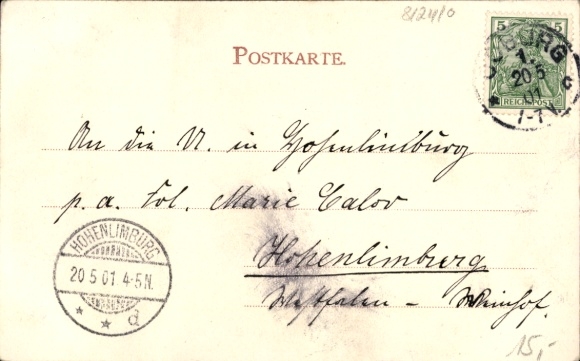 812410
POSTKARTE.
5 5
REICHSPOST
BURG
1.
20.5
01
1-7V.
c
An die V. in Hohenlimburg
p. a. Frl. Marie Calov
Hohenlimburg
Westfalen – Weinhof.
HOHENLIMBURG
20 5 01 4-5N.
* * d
15,-